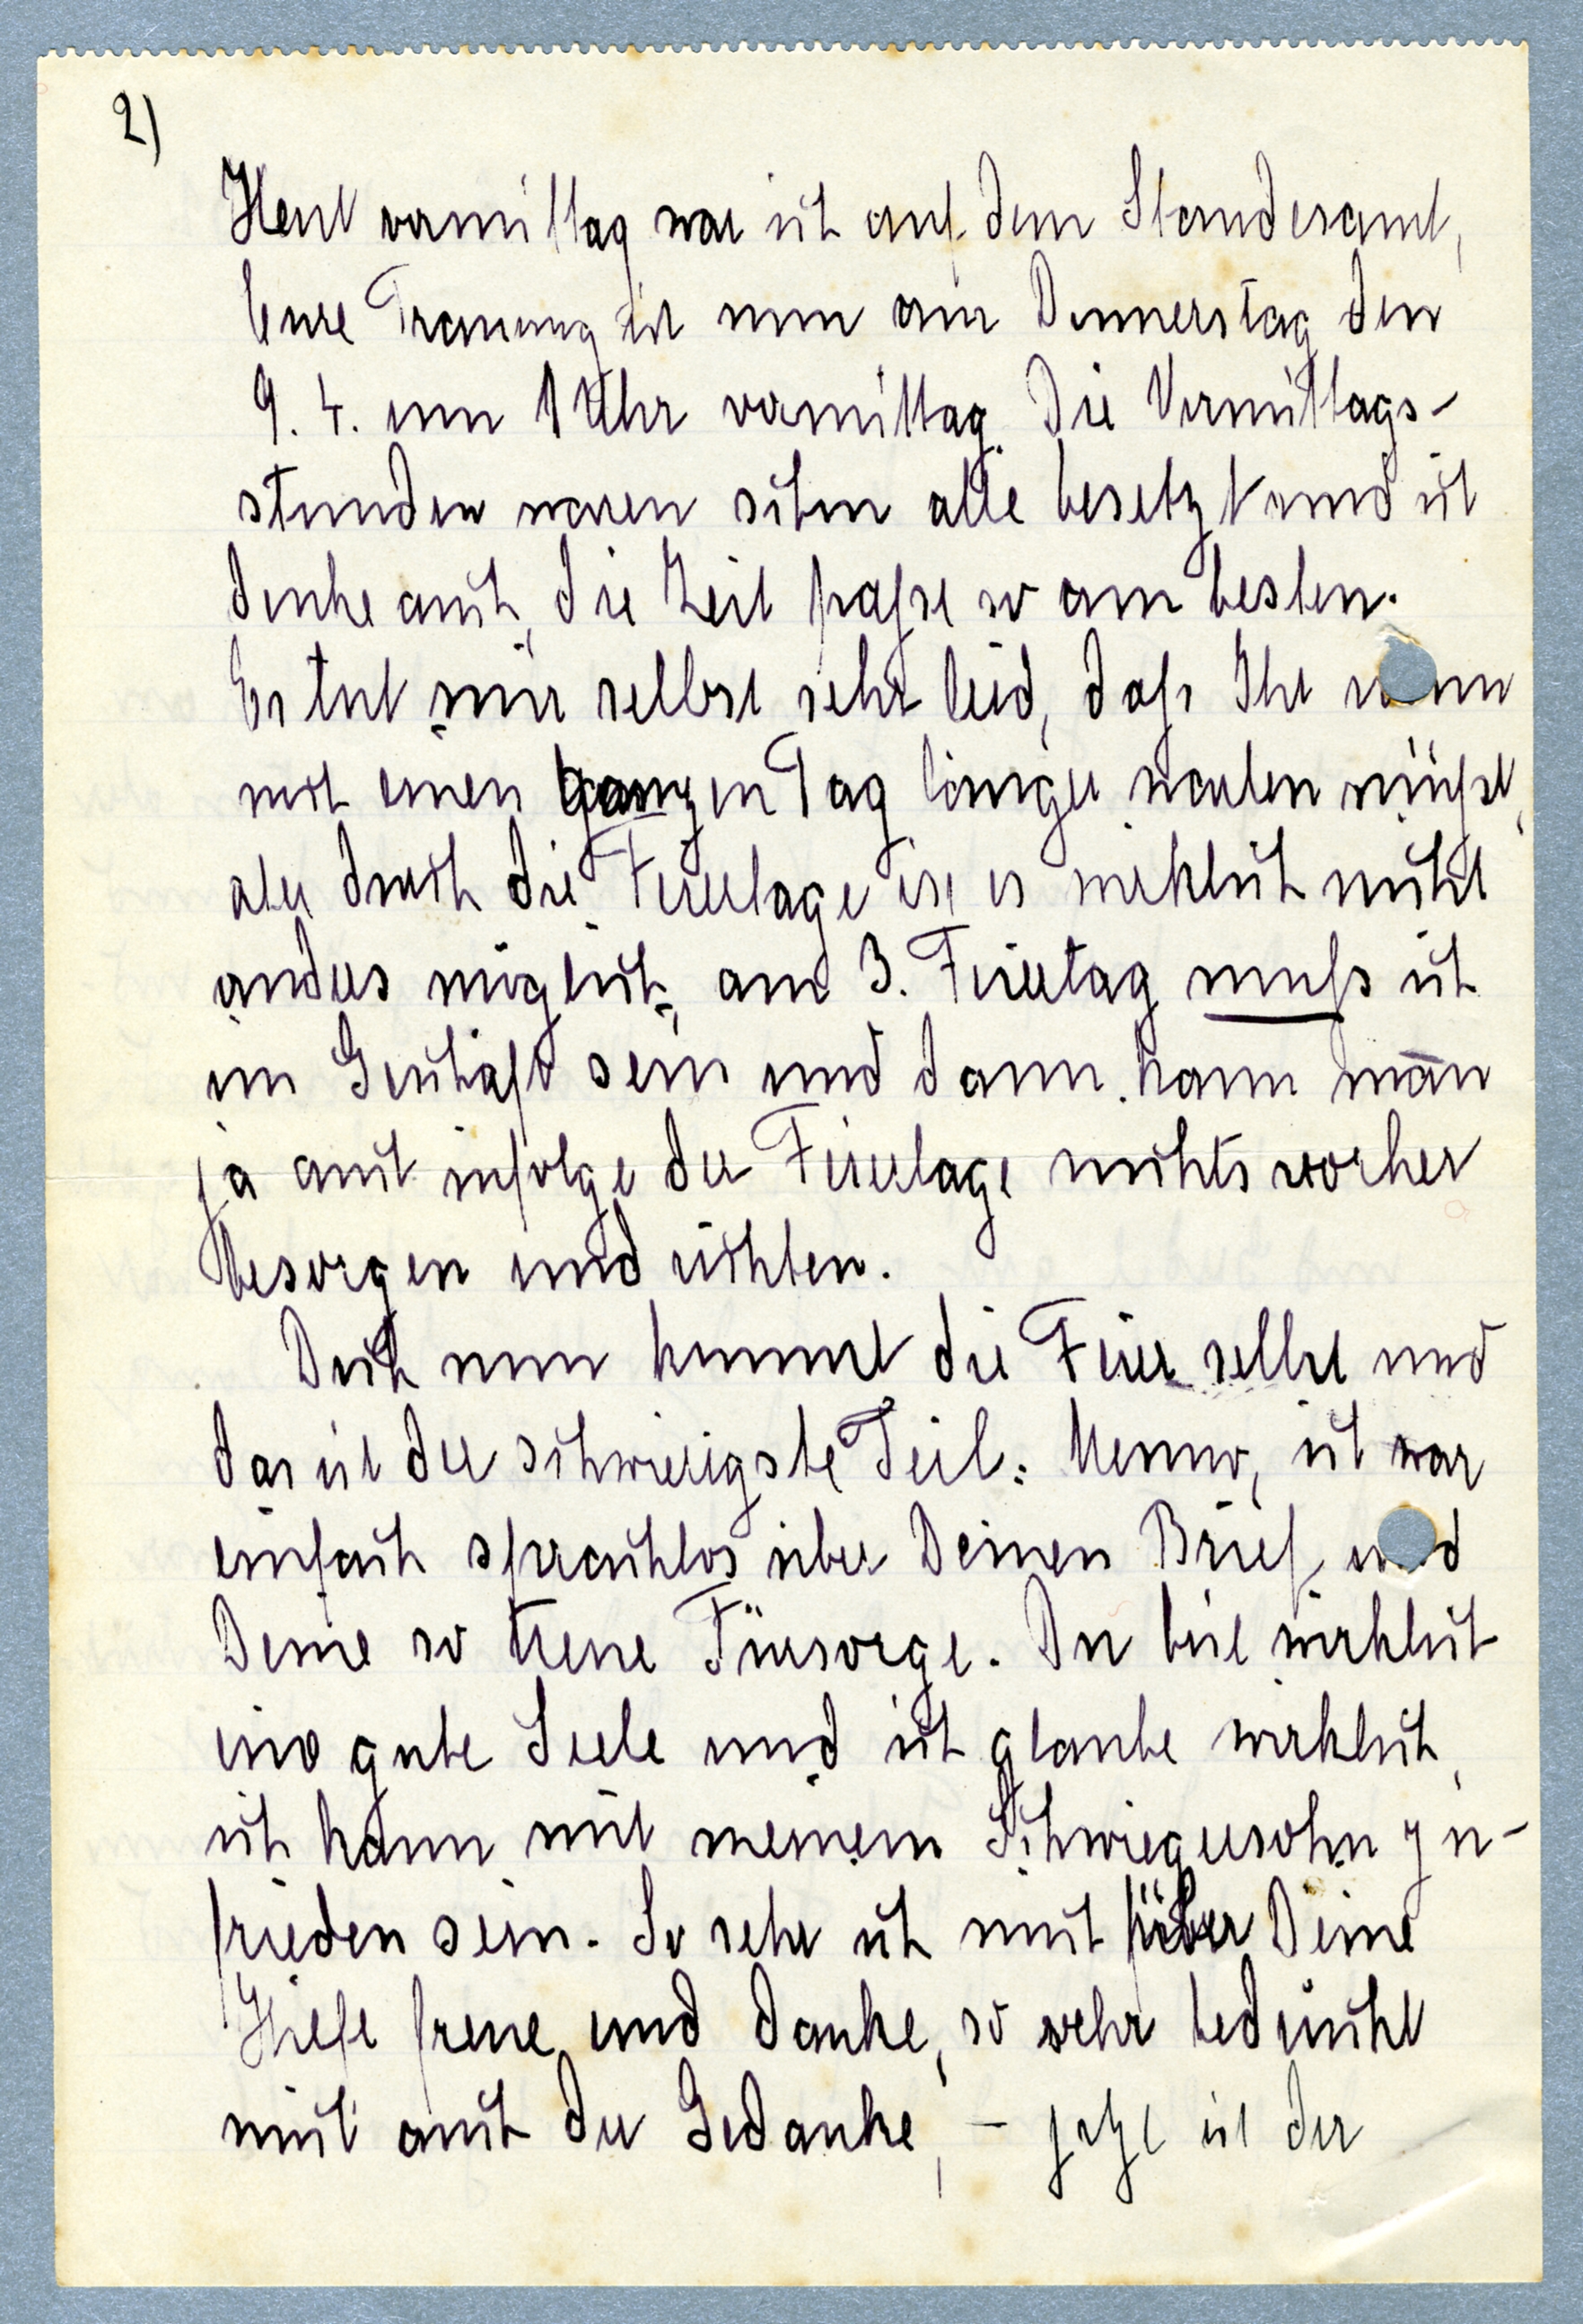 2)
Heut vormittag war ich auf dem Standesamt,
Eure Trauung ist nun am Donnerstag den
9. 4. um 1 Uhr vormittag. Die Vormittags-
stunden waren schon alle besetzt und ich
denke auch, die Zeit paßt so am besten.
Es tut mir selbst sehr leid, daß Ihr nun
noch einen ganzen Tag länger warten müßt,
aber durch die Feiertage ist es wirklich nicht
anders möglich, am 3. Feiertag muß ich
im Geschäft sein und dann kann man
ja auch infolge der Feiertage nichts vorher
besorgen und richten.
Doch nun kommt die Feier selbst und
das ist der schwierigste Teil. Menno, ich war
einfach sprachlos über Deinen Brief und
Deine so treue Fürsorge. Du bist wirklich
eine gute Seele und ich glaube wirklich,
ich kann mit meinem Schwiegersohn zu-
frieden sein. So sehr ich mich über Deine
Hilfe freue und danke, so sehr bedrückt
mich auch der Gedanke, – jetzt ist der